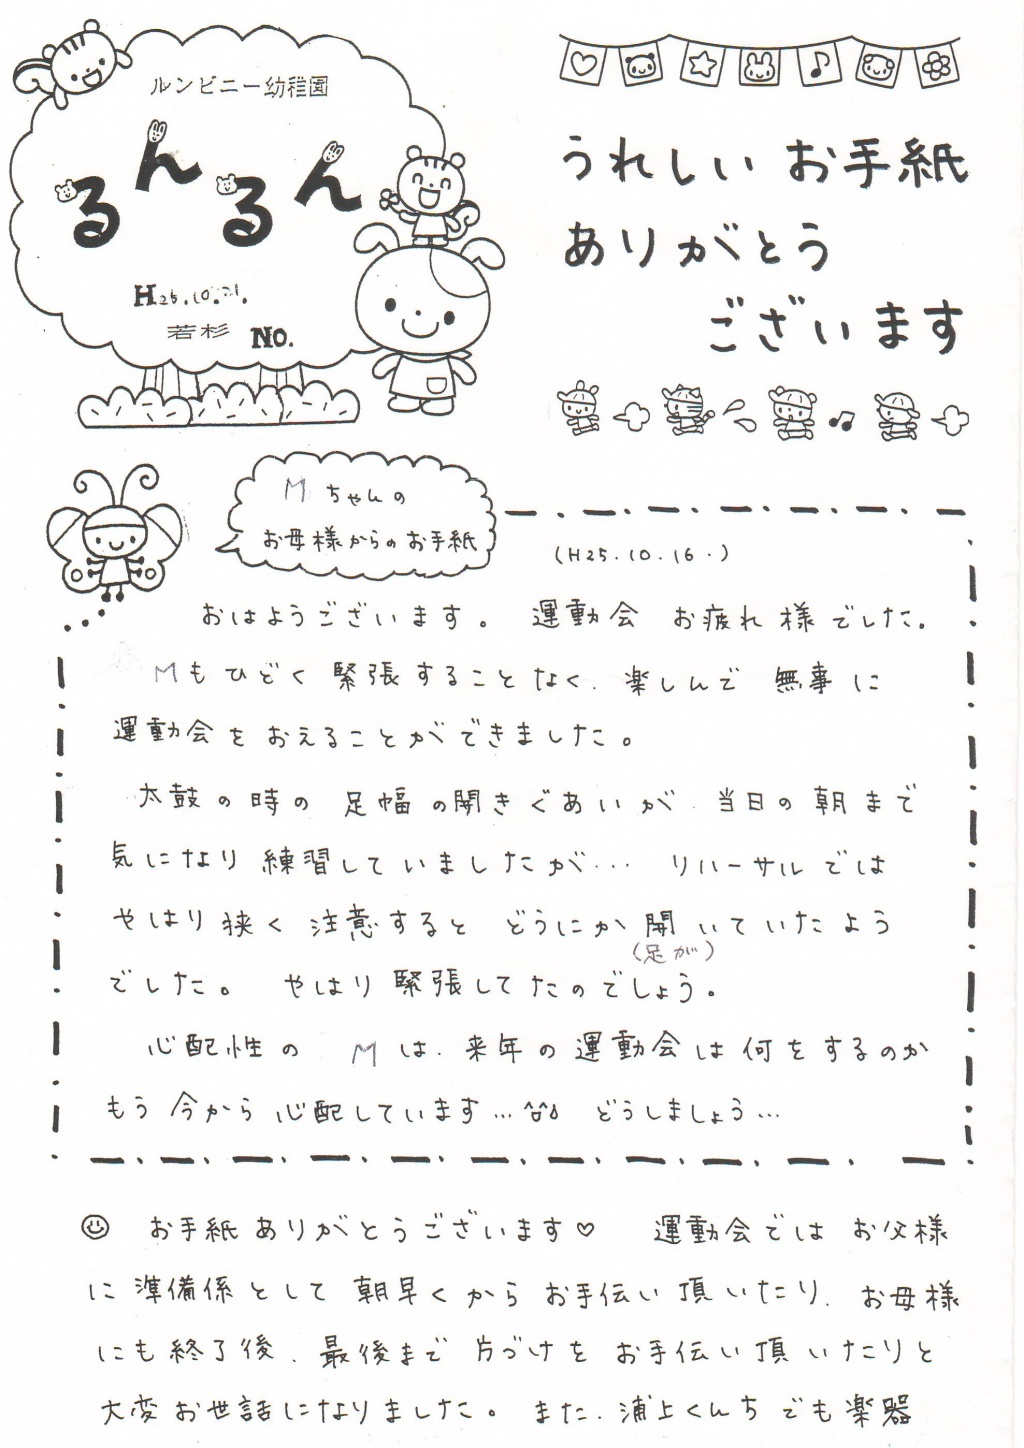 ルンビニー幼稚園
るんるん
H25.10.21.
若杉 No.
うれしいお手紙
ありがとう
ございます
Mちゃんの
お母様からのお手紙
(H25.10.16.)
おはようございます。 運動会 お疲れ様でした。
Mもひどく緊張することなく、楽しんで 無事に
運動会をおえることができました。
太鼓の時の 足幅の開きぐあいが、当日の朝まで
気になり練習していましたが… リハーサルでは
やはり狭く 注意すると どうにか開いていたよう
(足が)
でした。 やはり緊張してたのでしょう。
心配性の Mは、来年の運動会は何をするのか
もう今から心配しています… どうしましょう…
お手紙ありがとうございます♡ 運動会では お父様
に準備係として 朝早くから お手伝い頂いたり、お母様
にも終了後、最後まで片づけをお手伝い頂いたりと
大変お世話になりました。 また、浦上くんちでも楽器